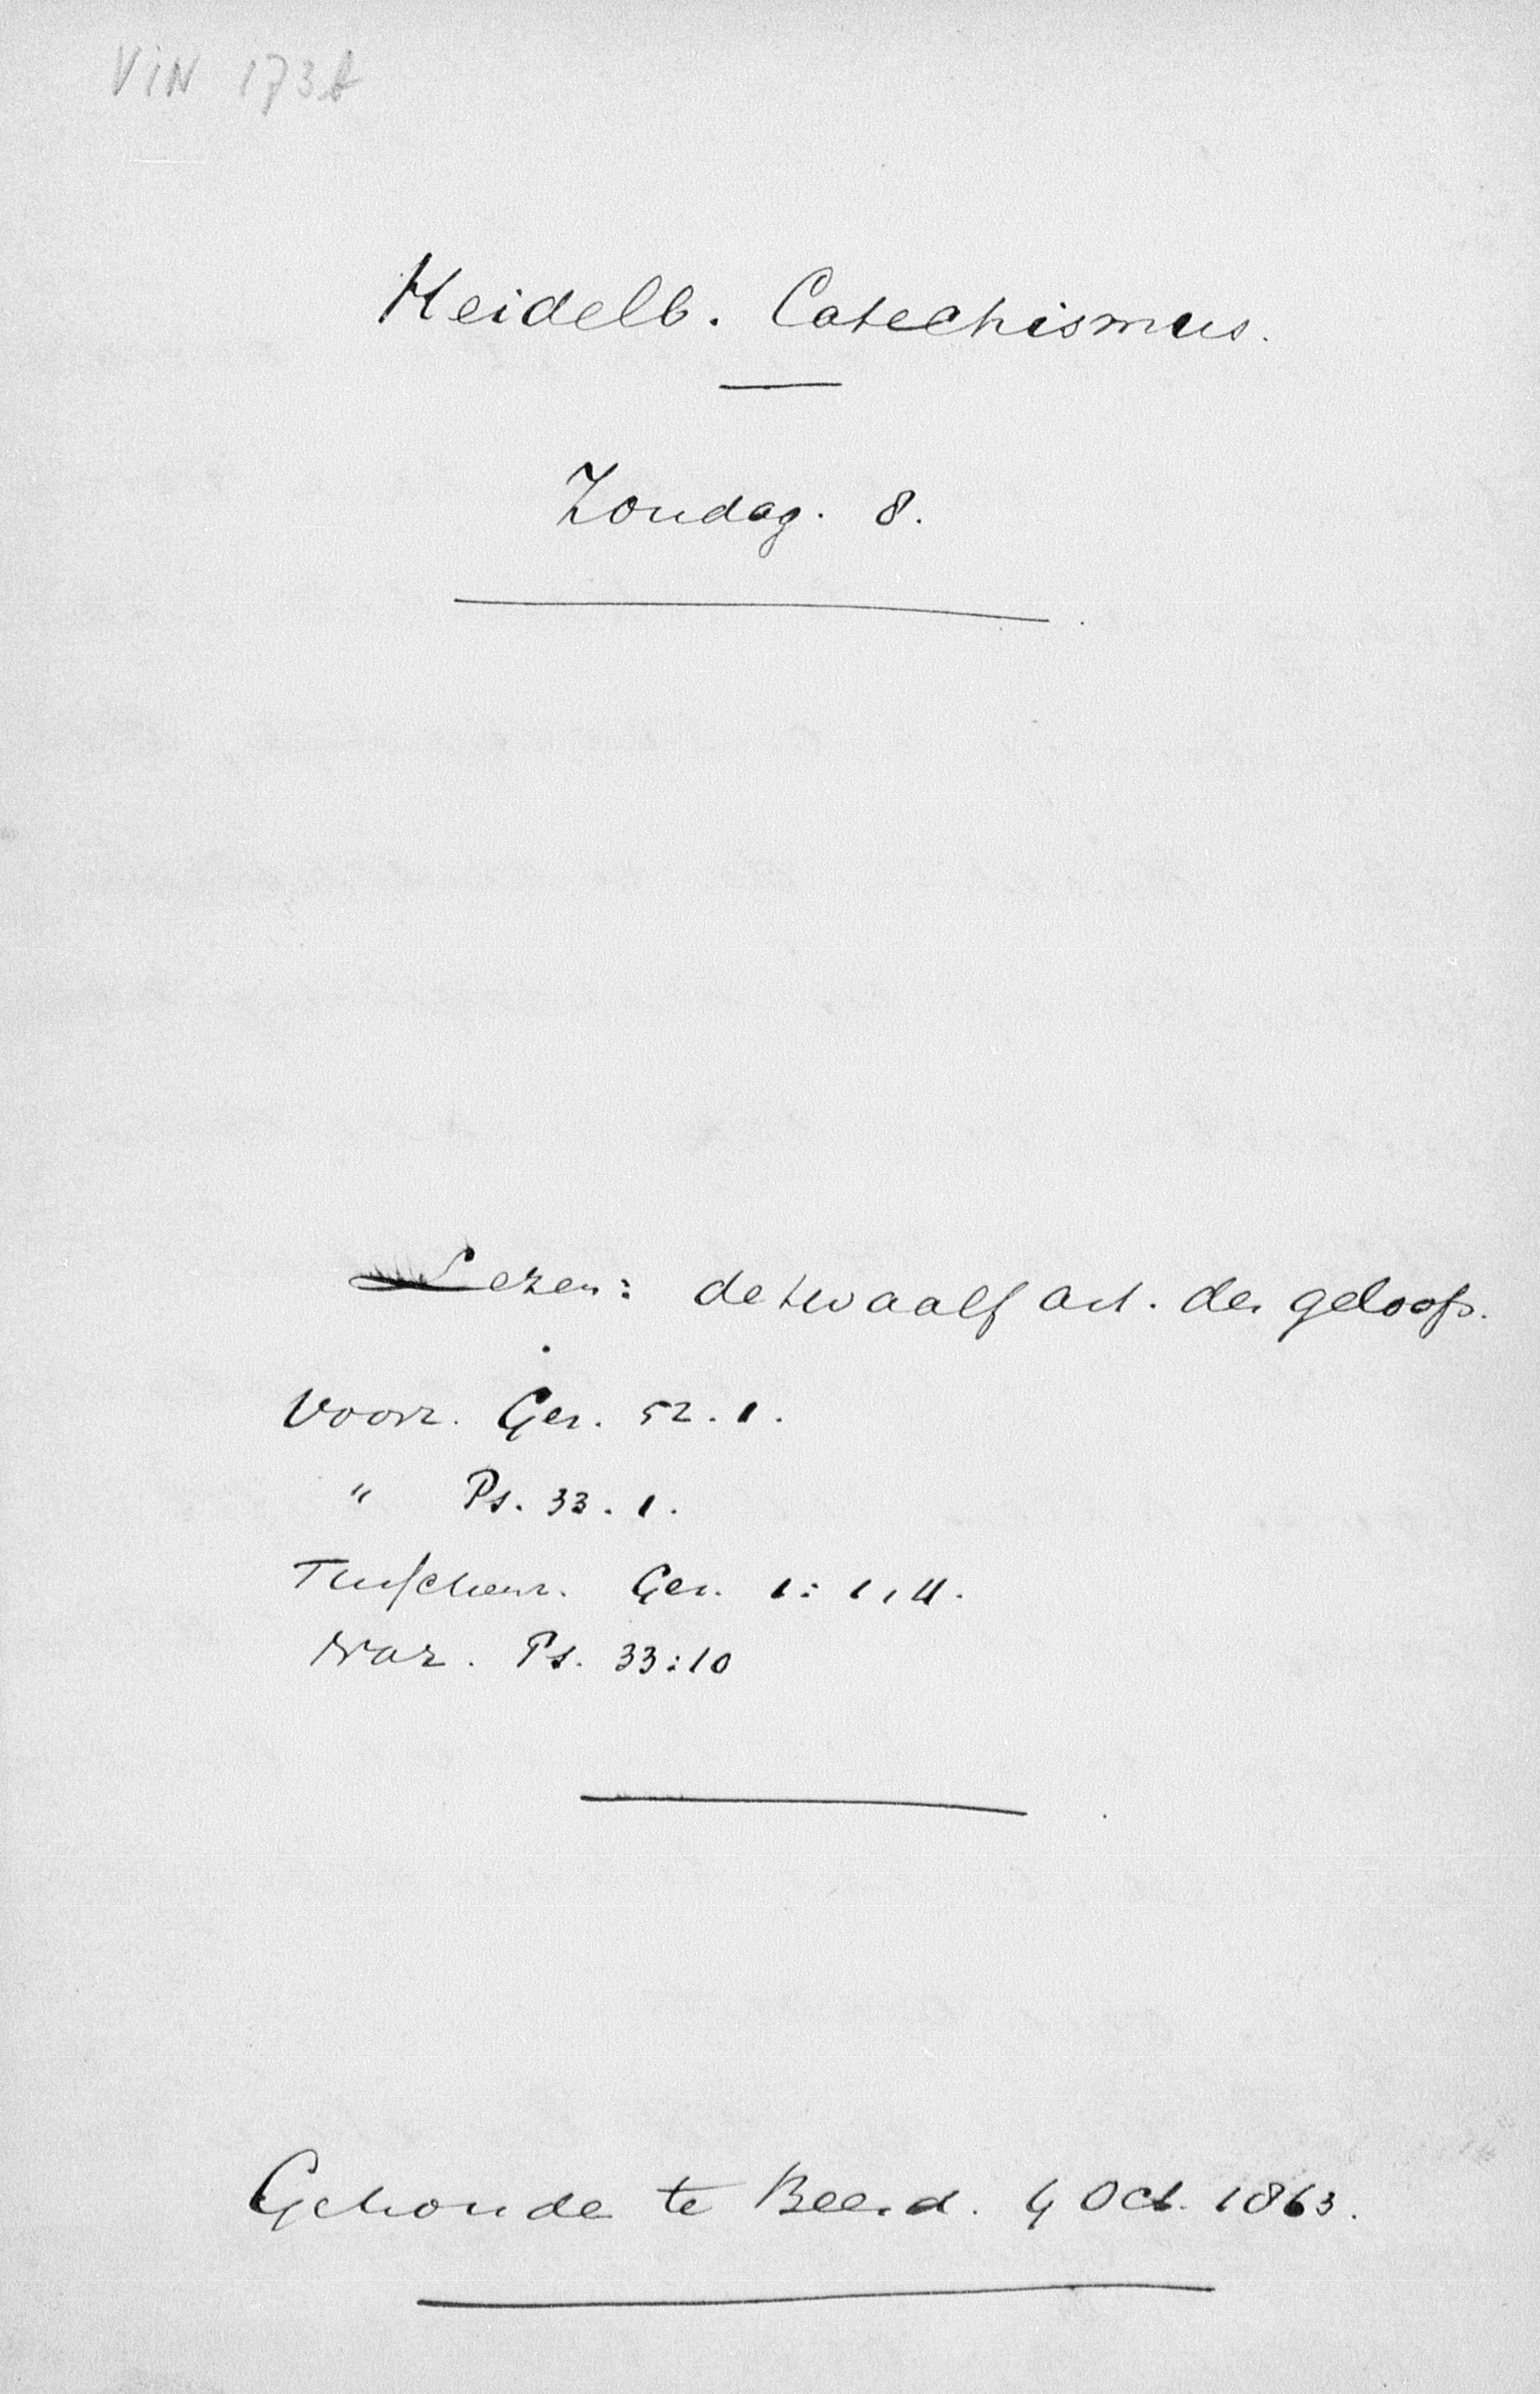 VIN 173A
Heidelb. Catechismus.
Zondag. 8.
Lezen: de twaalf art. des geloofs.
Voorz. Gez. 52.1.
" Ps. 33.1.
Tusschenz. Gez. 1: 1,4.
Naz. Ps. 33:10
Gehoude te Beesd. 4 Oct. 1863.